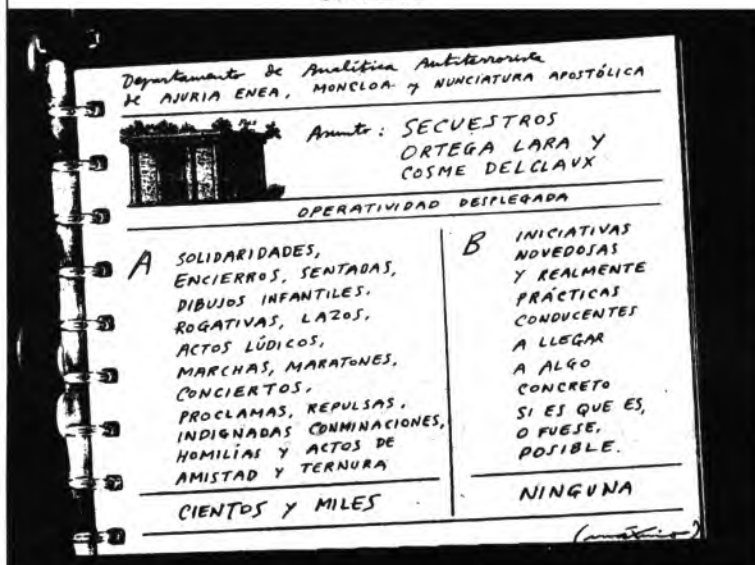 Departamento de Analítica Antiterrorista
de AJURIA ENEA, MONCLOA y NUNCIATURA APOSTÓLICA
Asunto: SECUESTROS
ORTEGA LARA Y
COSME DELCLAUX
OPERATIVIDAD DESPLEGADA
A SOLIDARIDADES,
ENCIERROS, SENTADAS,
DIBUJOS INFANTILES.
ROGATIVAS, LAZOS,
ACTOS LÚDICOS,
MARCHAS, MARATONES,
CONCIERTOS,
PROCLAMAS, REPULSAS,
INDIGNADAS CONMINACIONES,
HOMILÍAS Y ACTOS DE
AMISTAD Y TERNURA
CIENTOS Y MILES
B INICIATIVAS
NOVEDOSAS
Y REALMENTE
PRÁCTICAS
CONDUCENTES
A LLEGAR
A ALGO
CONCRETO
SI ES QUE ES,
O FUESE,
POSIBLE.
NINGUNA
(máximo)